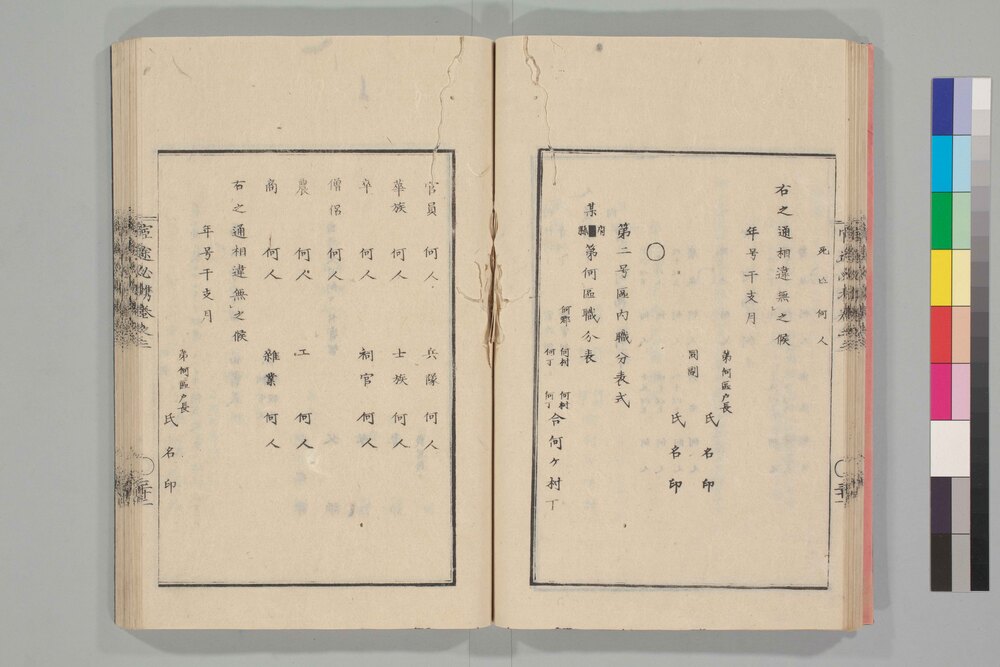 死亡 何人
右之通相違無之候
年号干支月
第何區戸長
氏名印
同間
氏名印
〇
第二号區内職分表式
某府縣第何區職分表
何郡 何村 何村
何丁 何丁 合何ヶ村丁
官員 何人 兵隊 何人
華族 何人 士族 何人
卒 何人 祠官 何人
僧侶 何人
農 何人 工 何人
商 何人 雑業 何人
右之通相違無之候
年号干支月
第何區戸長
氏名印